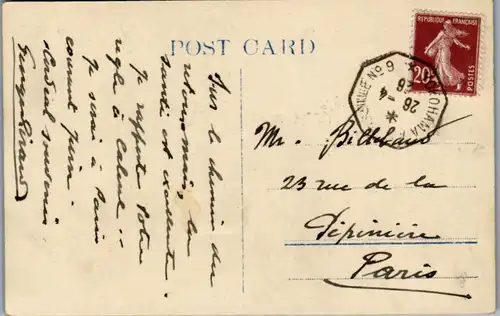 POST CARD
Sur le chemin du
retour mais, la
santé est excellente.
Je rapporte votre
règle à Calcul !!
Je serai à Paris
courant Juin.
Cordial souvenir
REPUBLIQUE FRANÇAISE
20c
POSTES
YOKOHAMA
Nº 9
26 - 4
26
Mr.
23 rue de la
Pépinière
Paris